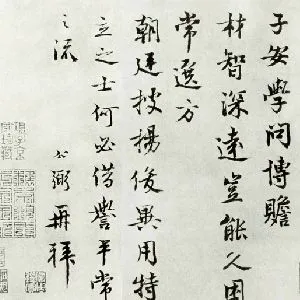 子安學問博贍
材智深遠豈能久困
常選方
朝廷拔揚俊異用特
立之士何必借譽平常
之流 公弼再拜